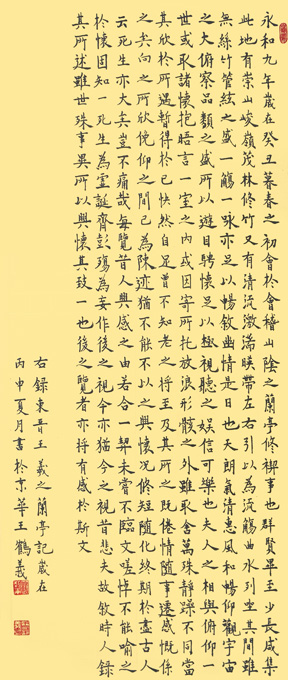 永和九年歲在癸丑暮春之初會於會稽山陰之蘭亭修禊事也群賢畢至少長咸集
此地有崇山峻嶺茂林修竹又有清流激湍映帶左右引以為流觴曲水列坐其間雖
無絲竹管絃之盛一觴一詠亦足以暢敘幽情是日也天朗氣清惠風和暢仰觀宇宙
之大俯察品類之盛所以遊目騁懷足以極視聽之娛信可樂也夫人之相與俯仰一
世或取諸懷抱晤言一室之內或因寄所托放浪形骸之外雖取舍萬殊靜躁不同當
其欣於所遇暫得於己快然自足曾不知老之將至及其所之既倦情隨事遷感慨係
之矣向之所欣俛仰之間已為陳迹猶不能不以之興懷況修短隨化終期於盡古人
云死生亦大矣豈不痛哉每覽昔人興感之由若合一契未嘗不臨文嗟悼不能喻之
於懷固知一死生為虛誕齊彭殤為妄作後之視今亦猶今之視昔悲夫故敘時人錄
其所述雖世殊事異所以興懷其致一也後之覽者亦將有感於斯文
右錄東晉王羲之蘭亭記歲在
丙申夏月書於京華王鶴義